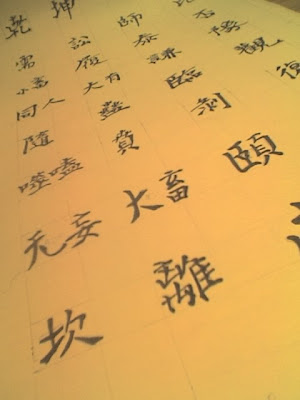 乾 坤
需 訟 師 比
小畜 履 泰 否
同人 大有 謙 豫
隨 蠱 臨 觀
噬嗑 賁 剝 復
无妄 大畜 頤
坎 離